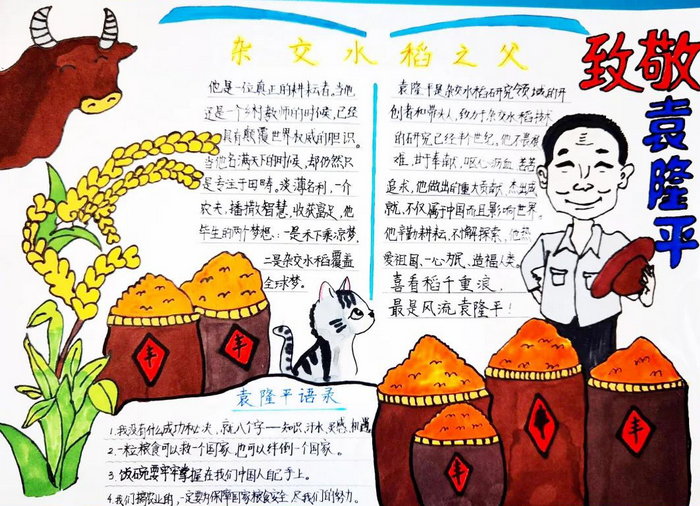 杂交水稻之父
致敬
袁隆平
他是一位真正的耕耘者。当他
还是一个乡村教师的时候,已经
具有颠覆世界权威的胆识。
当他名满天下的时候,却仍然只
是专注于田畴。淡薄名利,一介
农夫,播撒智慧,收获富足。他
毕生的两个梦想:一是禾下乘凉梦,
二是杂交水稻覆盖
全球梦。
袁隆平是杂交水稻研究领域的开
创者和带头人,致力于杂交水稻技术
的研究已经半世纪。他不畏艰
难,甘于奉献,呕心沥血,苦苦
追求,他做出的重大贡献,杰出成
就,不仅属于中国而且影响世界。
他辛勤耕耘,不懈探索,他热
爱祖国,一心为民,造福人类。
喜看稻千重浪,
最是风流袁隆平!
袁隆平语录
1.我没有什么成功秘诀,就八个字——知识,汗水,灵感,机遇
2.一粒粮食可以救一个国家,也可以绊倒一个国家。
3.饭碗要牢牢掌握在我们中国人自己手上。
4.我们搞农业的,一定要为保障国家粮食安全尽我们的努力。
丰
丰
丰
丰
丰
丰